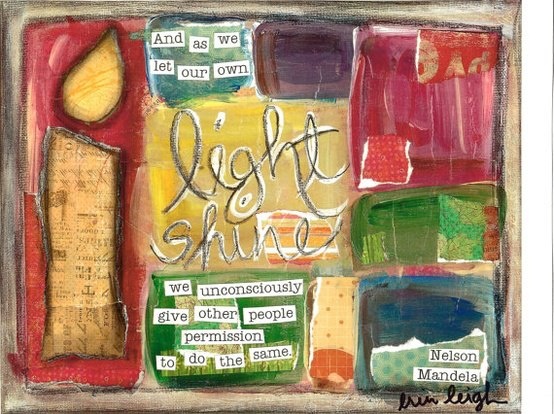 And as we
let our own
light
shine
we unconsciously
give other people
permission
to do the same.
Nelson
Mandela
erin leigh